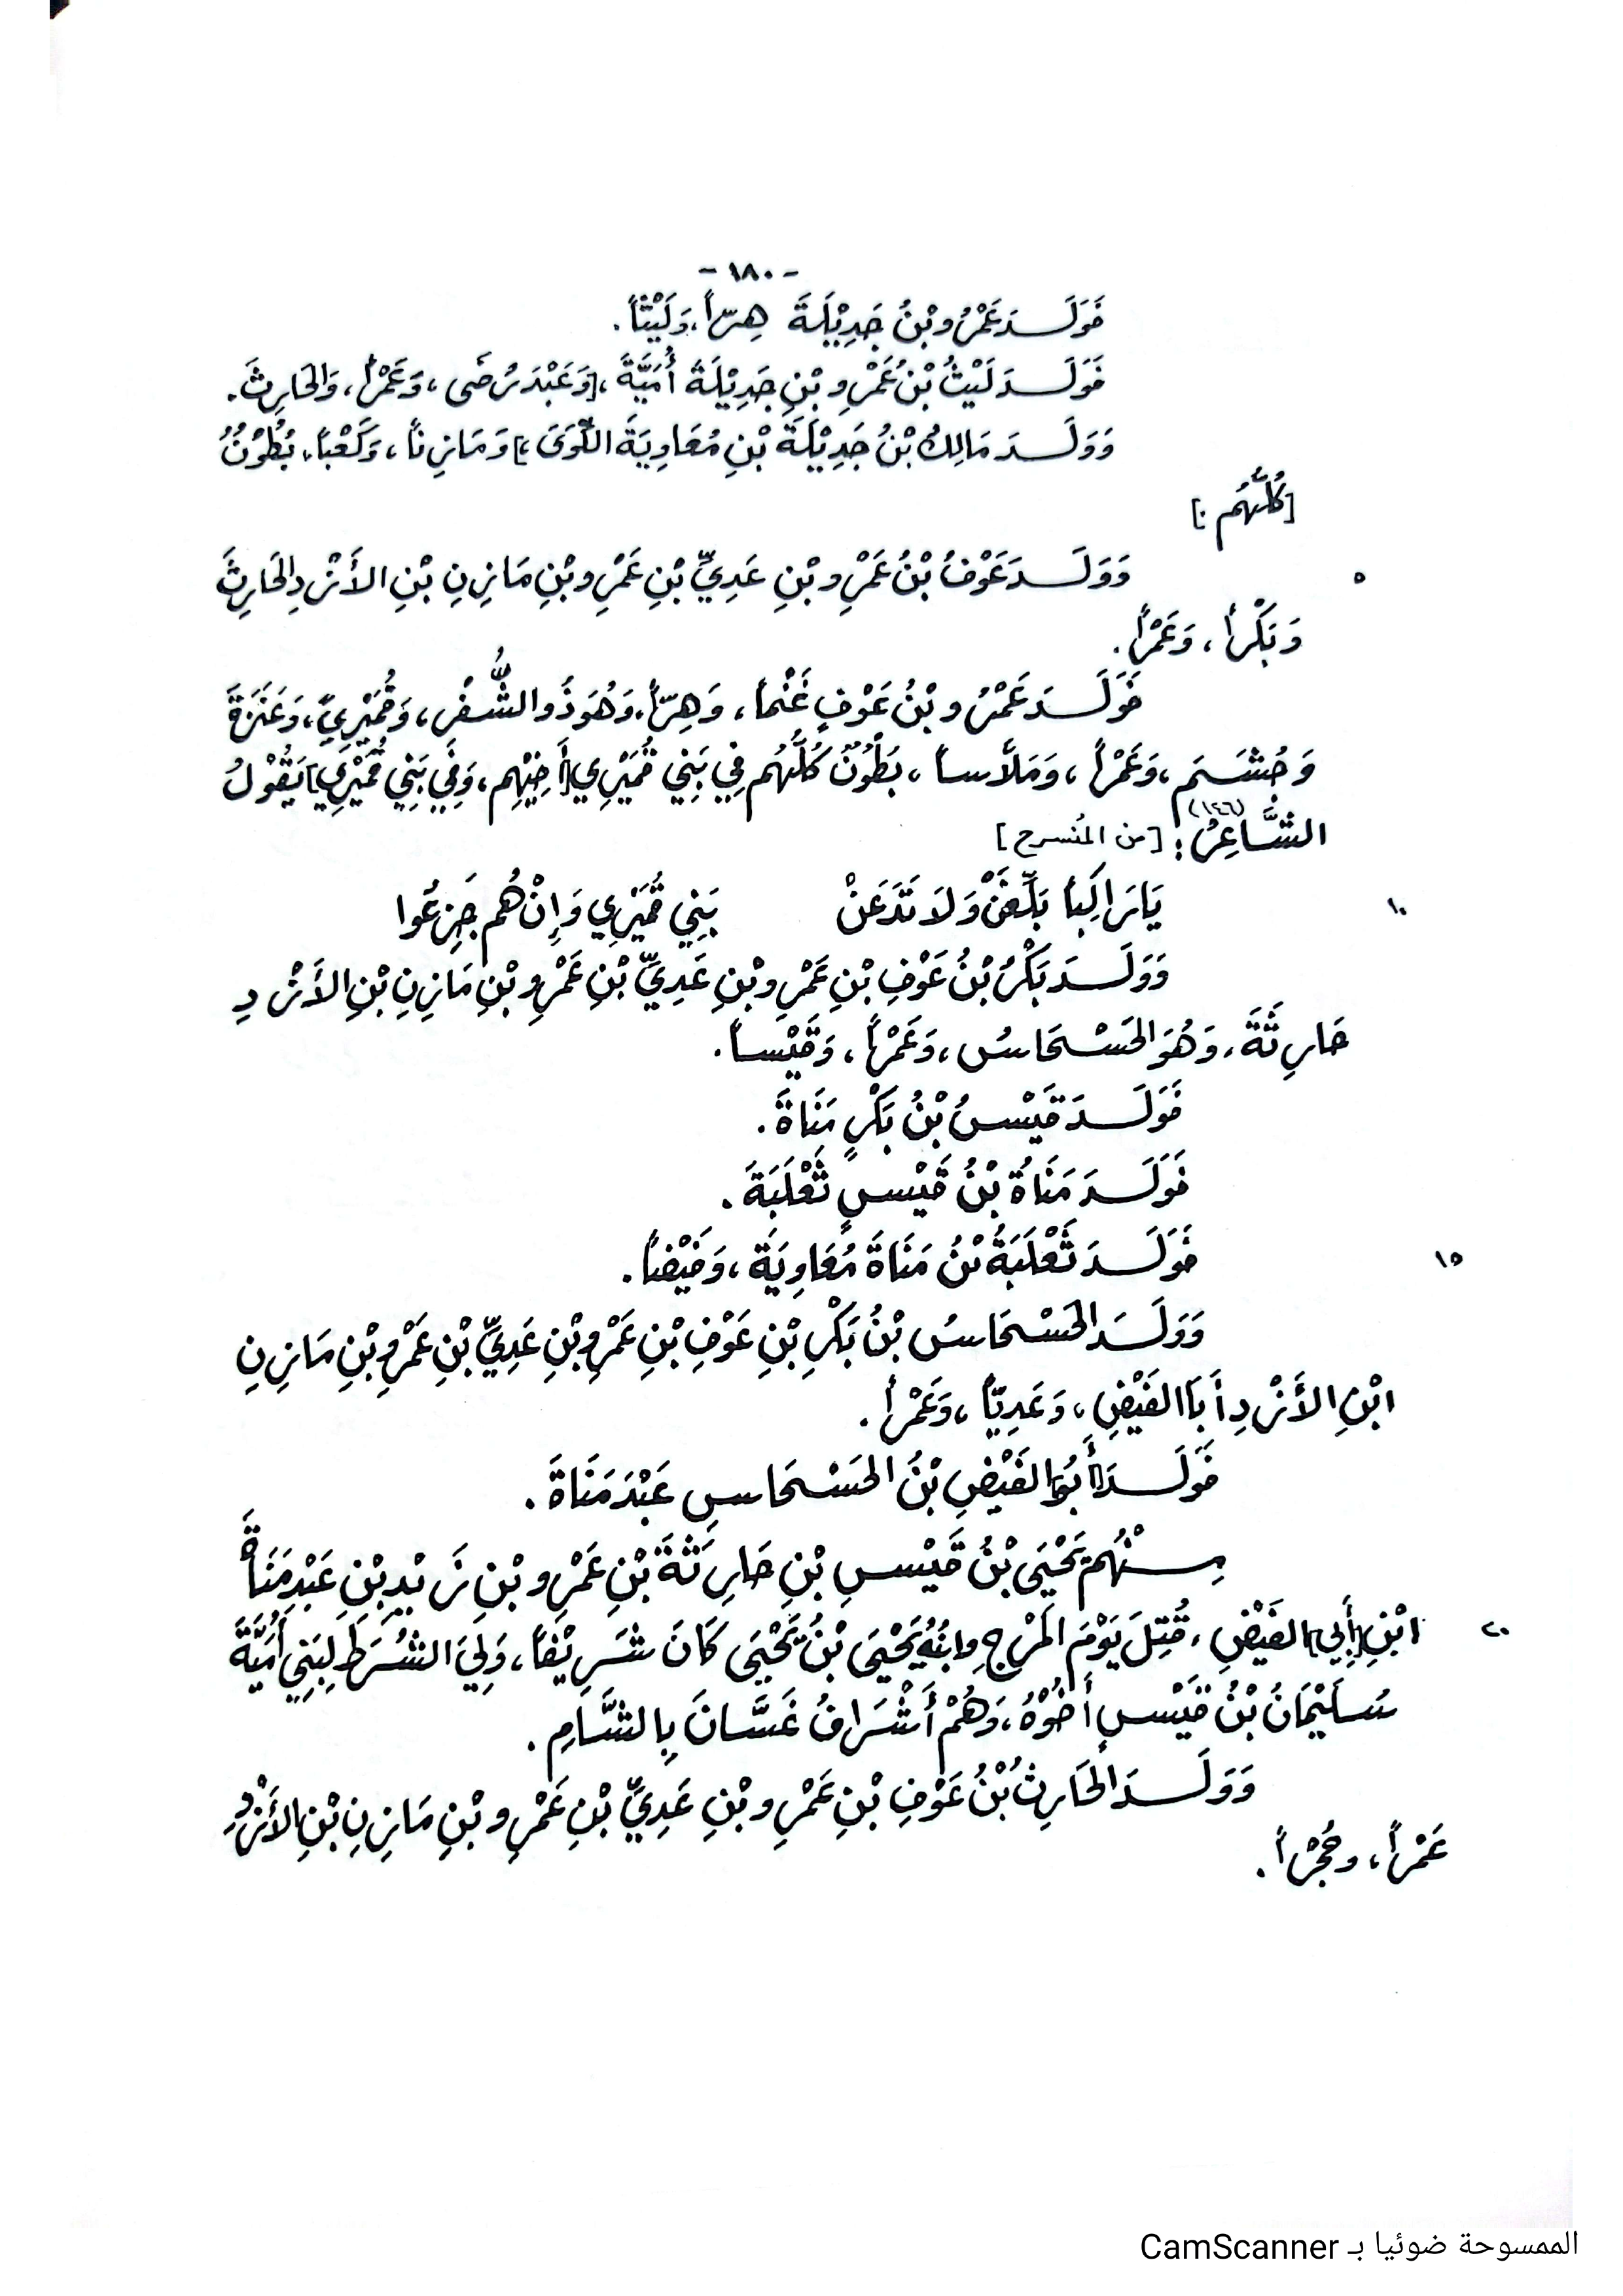 - ١٨٠ -
فَوَلَـدَ عَمْرُو بْنُ جَدِيْلَةَ هِرّاً، وَلَيْثاً.
فَوَلَـدَ لَيْثُ بْنُ عَمْرِو بْنِ جَدِيْلَةَ أُمَيَّةَ، [وَعَبْدَ رُضَى، وَعَمْراً، وَالحَارِثَ.
وَوَلَـدَ مَالِكُ بْنُ جَدِيْلَةَ بْنِ مُعَاوِيَةَ اللَّوَى،] وَمَازِناً، وَكَعْباً، بُطُوْنٌ
[كُلُّهُم.]
٥ وَوَلَـدَ عَوْفُ بْنُ عَمْرِو بْنِ عَدِيِّ بْنِ عَمْرِو بْنِ مَازِنِ بْنِ الأَزْدِ الحَارِثَ
وَبَكْراً، وَعَمْراً.
فَوَلَـدَ عَمْرُو بْنُ عَوْفٍ غَنْماً، وَهِرّاً، وَهُوَ ذُو الشُّفْرِ، وَقُمَيْرِيَّ، وَعَنَزَةَ
وَجُشَـمَ، وَعَمْراً، وَمَلاَّساً، بُطُوْنٌ كُلُّهُم فِي بَنِي قُمَيْرِي [أَخِيْهِم، وَفِي بَنِي قُمَيْرِي] يَقُوْلُ
الشَّاعِرُ (١٤٦): [من المُنسرح]
١٠ يَا رَاكِباً بَلِّغَنْ وَلاَ تَدَعَنْ بَنِي قُمَيْرِي وَإِنْ هُم جَزِعُوا
وَوَلَـدَ بَكْرُ بْنُ عَوْفِ بْنِ عَمْرِو بْنِ عَدِيِّ بْنِ عَمْرِو بْنِ مَازِنِ بْنِ الأَزْدِ
حَارِثَةَ، وَهُوَ الحَسْحَاسُ، وَعَمْراً، وَقَيْساً.
فَوَلَـدَ قَيْسُ بْنُ بَكْرٍ مَنَاةَ.
فَوَلَـدَ مَنَاةُ بْنُ قَيْسٍ ثَعْلَبَةَ.
١٥ فَوَلَـدَ ثَعْلَبَةُ بْنُ مَنَاةَ مُعَاوِيَةَ، وَفَيْضاً.
وَوَلَـدَ الحَسْحَاسُ بْنُ بَكْرِ بْنِ عَوْفِ بْنِ عَمْرِو بْنِ عَدِيِّ بْنِ عَمْرِو بْنِ مَازِنِ
ابْنِ الأَزْدِ أَبَا الفَيْضِ، وَعَدِيّاً، وَعَمْراً.
فَوَلَـدَ [أَبُو] الفَيْضِ بْنُ الحَسْحَاسِ عَبْدَ مَنَاةَ.
مِـنْهُم يَحْيَى بْنُ قَيْسِ بْنِ حَارِثَةَ بْنِ عَمْرِو بْنِ زَيْدِ بْنِ عَبْدِ مَنَاةَ
٢٠ ابْنِ [أَبِي] الفَيْضِ، قُتِلَ يَوْمَ المَرْجِ وابْنُهُ يَحْيَى بْنُ يَحْيَى كَانَ شَرِيْفاً، وَلِيَ الشُّرَطَ لِبَنِي أُمَيَّةَ
سُـلَيْمَانُ بْنُ قَيْسٍ أَخُوْهُ، وَهُمْ أَشْرَافُ غَسَّانَ بِالشَّامِ.
وَوَلَـدَ الحَارِثُ بْنُ عَوْفِ بْنِ عَمْرِو بْنِ عَدِيِّ بْنِ عَمْرِو بْنِ مَازِنِ بْنِ الأَزْدِ
عَمْراً، وحُجْراً.
الممسوحة ضوئيا بـ CamScanner